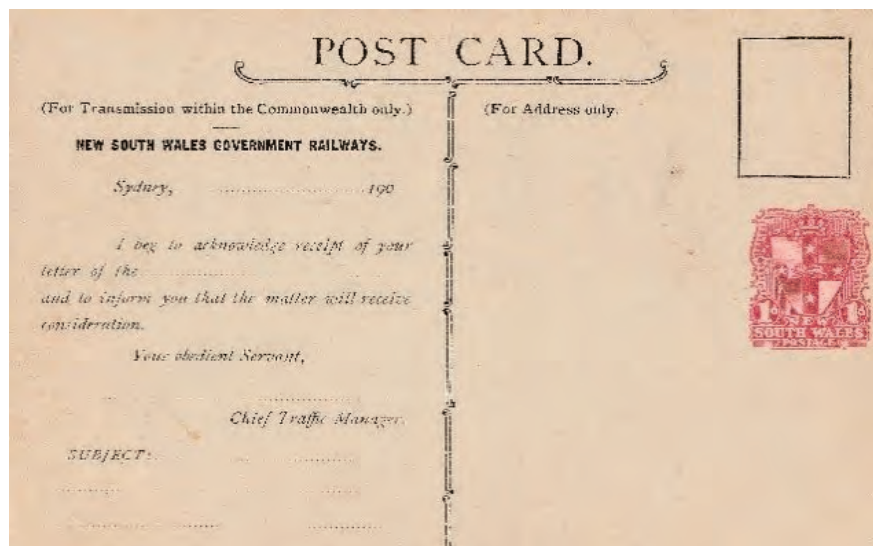 POST CARD.
(For Transmission within the Commonwealth only.)
NEW SOUTH WALES GOVERNMENT RAILWAYS.
Sydney, 190
I beg to acknowledge receipt of your
letter of the
and to inform you that the matter will receive
consideration.
Your obedient Servant,
Chief Traffic Manager.
SUBJECT:
(For Address only.
1d NEW 1d
SOUTH WALES
POSTAGE